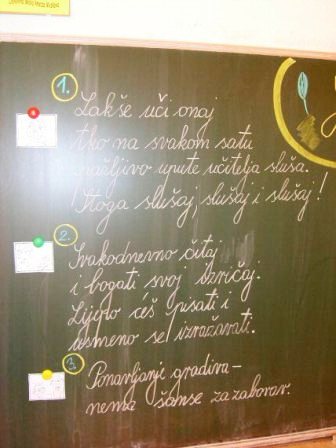 1.
Lakše uči onaj
tko na svakom satu
pažljivo upute učitelja sluša.
Stoga slušaj, slušaj i slušaj!
2.
Svakodnevno čitaj
i bogati svoj izričaj.
Lijepo ćeš pisati i
usmeno se izražavati.
3.
Ponavljanje gradiva –
nema šanse za zaborav.